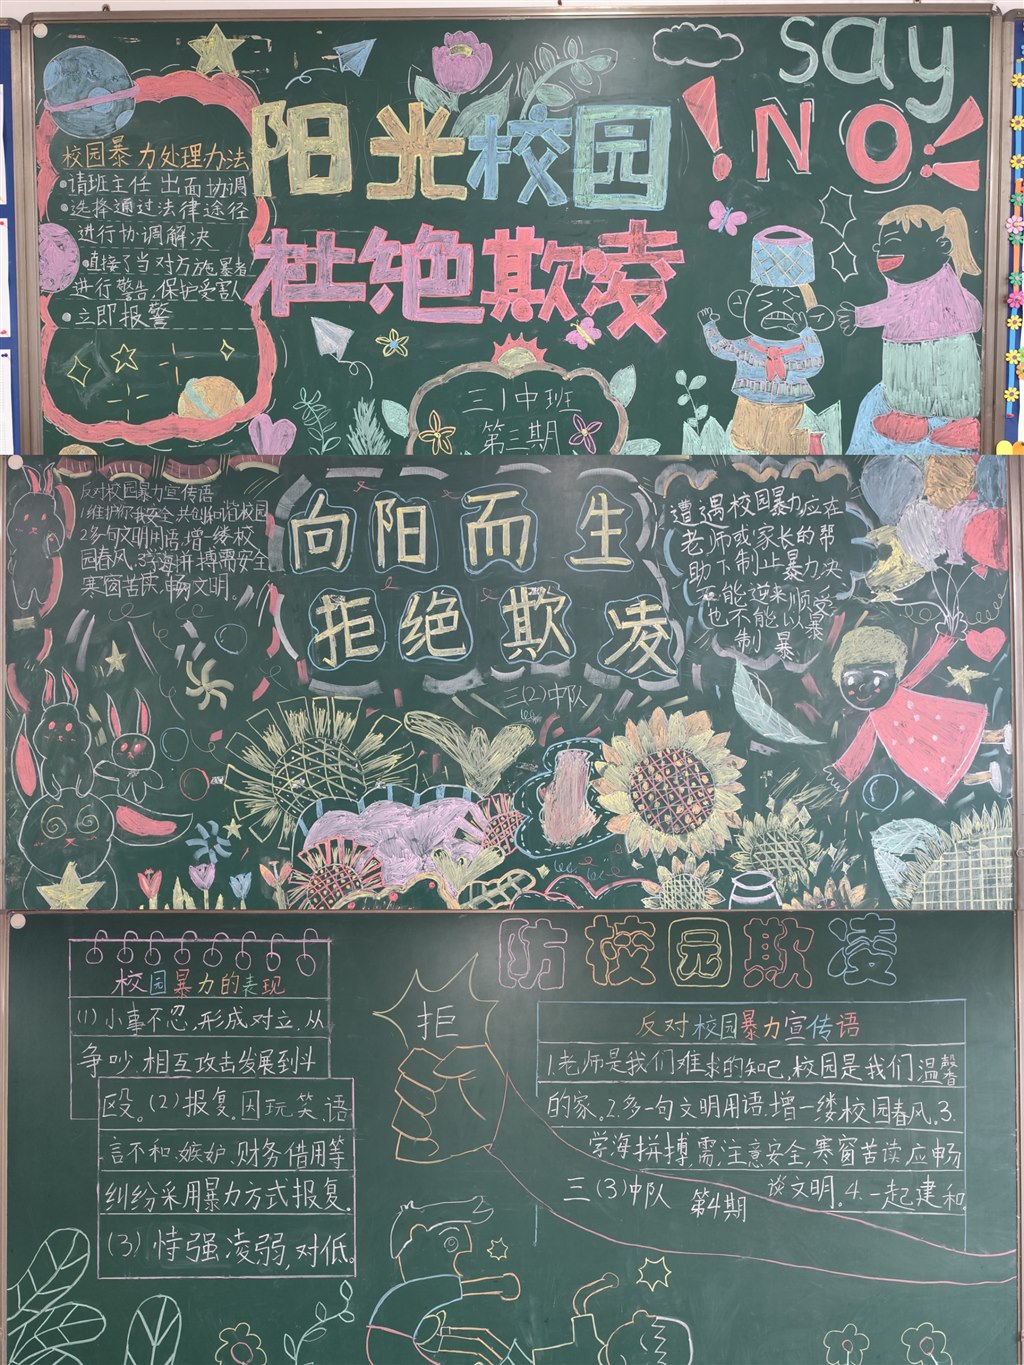 say
NO!
阳光校园
杜绝欺凌
校园暴力处理办法
请班主任出面协调
选择通过法律途径
进行协调解决
直接了当对方施暴者
进行警告,保护受害人
立即报警
三1中班
第三期
向阳而生
拒绝欺凌
三(2)中队
反对校园暴力宣传语
1.维护你我安全,共创和谐校园
2.多句文明用语,增一缕校
园春风、3.学海拼搏需安全
寒窗苦读,畅文明。
遭遇校园暴力,应在
老师或家长的帮
助下制止暴力,决
不能逆来顺受
也不能以暴
制暴
防校园欺凌
拒
校园暴力的表现
(1)小事不忍,形成对立,从
争吵、相互攻击发展到斗
殴。(2)报复。因玩笑语
言不和、嫉妒、财务借用等
纠纷采用暴力方式报复。
(3)恃强凌弱,对低。
反对校园暴力宣传语
1.老师是我们难求的知己,校园是我们温馨
的家。2.多一句文明用语,增一缕校园春风。3.
学海拼搏,需注意安全,寒窗苦读,应畅
谈文明。4.一起建和
三(3)中队
第4期